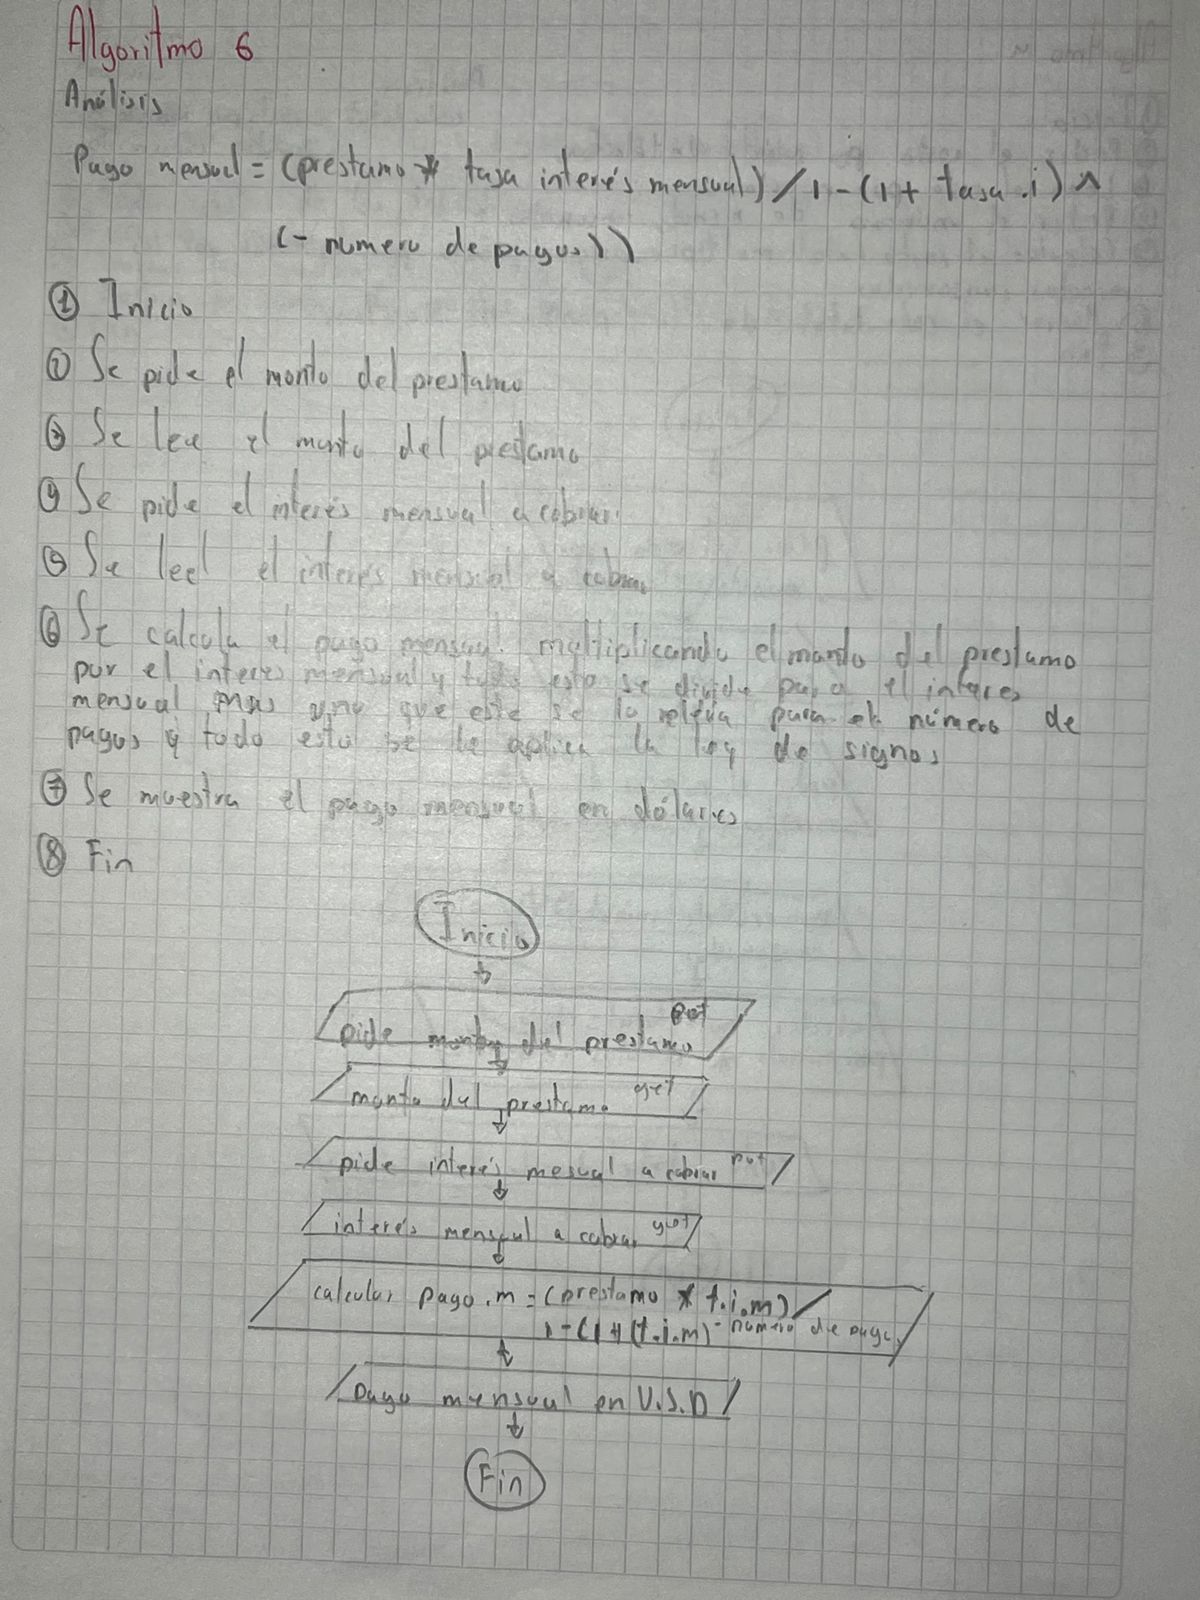 Algoritmo 6
Análisis
Pago mensual = (prestamo * tasa interés mensual) / 1 - (1 + tasa.i) ^
(- numero de pagos))
① Inicio
② Se pide el monto del prestamo
③ Se lee el monto del prestamo
④ Se pide el interés mensual a cobrar.
⑤ Se leel el interés mensual a cobrar
⑥ Se calcula el pago mensual multiplicando el monto del prestamo
por el interes mensual y todo esto se divide para el interes
mensual mas uno que este se lo releva para el número de
pagos y todo esto se le aplica la ley de signos
⑦ Se muestra el pago mensual en dólares
⑧ Fin
Inicio
put
pide monto del prestamo
monto del prestamo get
pide interés mesual a cobrar put
interés mensual a cobrar get
calcular pago.m = (prestamo * t.i.m) /
1 - (1 + (t.i.m) - número de pagos
pago mensual en U.S.D
Fin